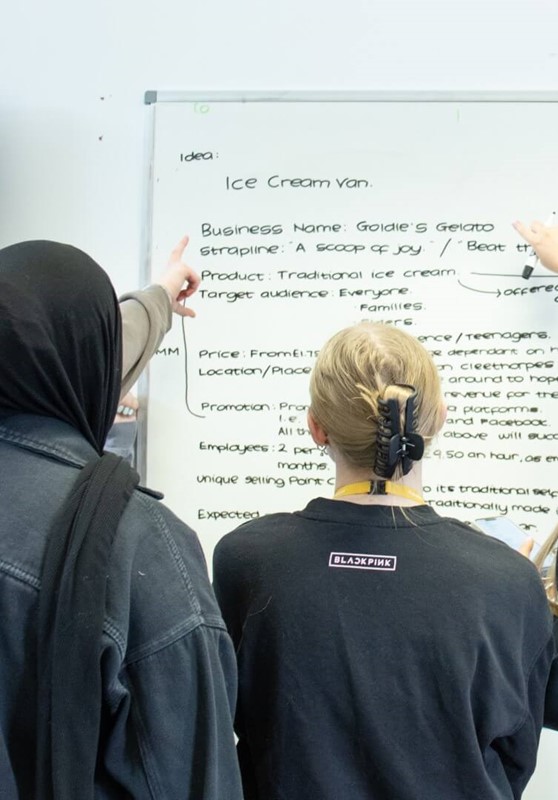 Idea:
Ice Cream Van.
Business Name: Goldie's Gelato
strapline: "A scoop of joy." / "Beat
Product: Traditional ice cream
offered
Target audience: Everyone.
Families.
/Teenagers.
MM
Price: From £1.75 dependant on
Location/Place on cleethorpes
around to
revenue for the
Promotion: platforms.
I.e. and Facebook.
All above will
Employees: 2 £9.50 an hour, as
months.
Unique selling Point its traditional
traditionally made
Expected
BLACKPINK